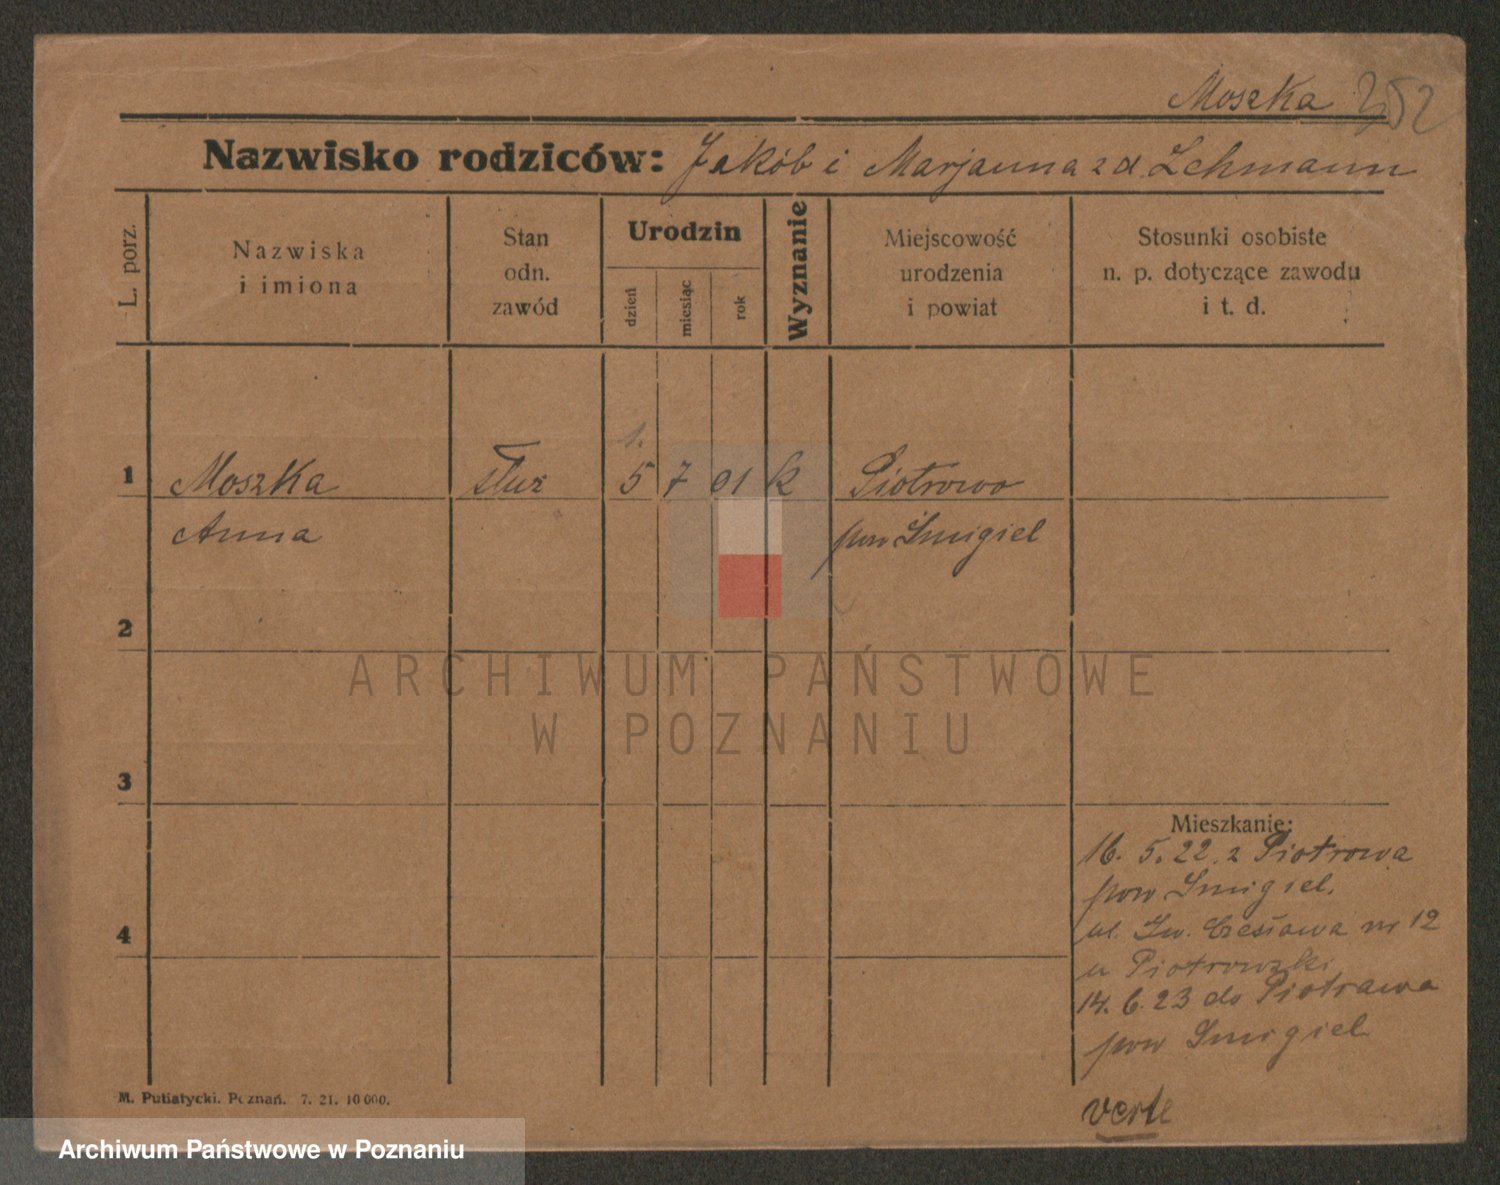 Moszka 252
Nazwisko rodziców: Jakób i Marjanna z d. Lehmann
L. porz.
Nazwiska
i imiona
Stan
odn.
zawód
Urodzin
dzień
miesiąc
rok
Wyznanie
Miejscowość
urodzenia
i powiat
Stosunki osobiste
n. p. dotyczące zawodu
i t. d.
1.
1 Moszka służ 5 7 01 k Piotrowo
Anna pow Śmigiel
2
3
4
Mieszkanie:
16. 5. 22. z Piotrowa
pow Śmigiel.
ul. Św. Czesława nr 12
u Piotrowski
14. 6. 23 do Piotrawa
pow Śmigiel
verte
M. Putiatycki. Poznań. 7. 21. 10 000.
ARCHIWUM PAŃSTWOWE
W POZNANIU
Archiwum Państwowe w Poznaniu